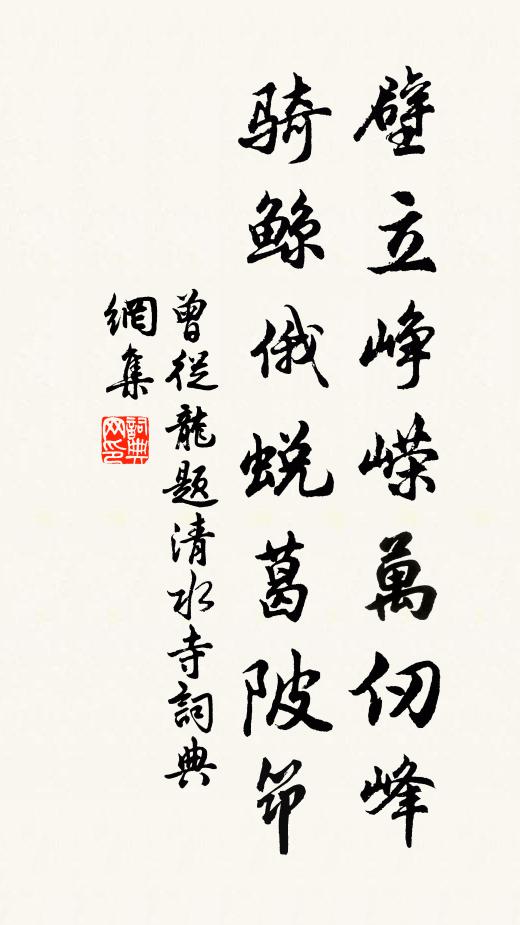 壁立峥嵘萬仞峰
骑鲸俄蜕葛陂筇
曾從龍题清水寺詞典
網集
詞典
网印